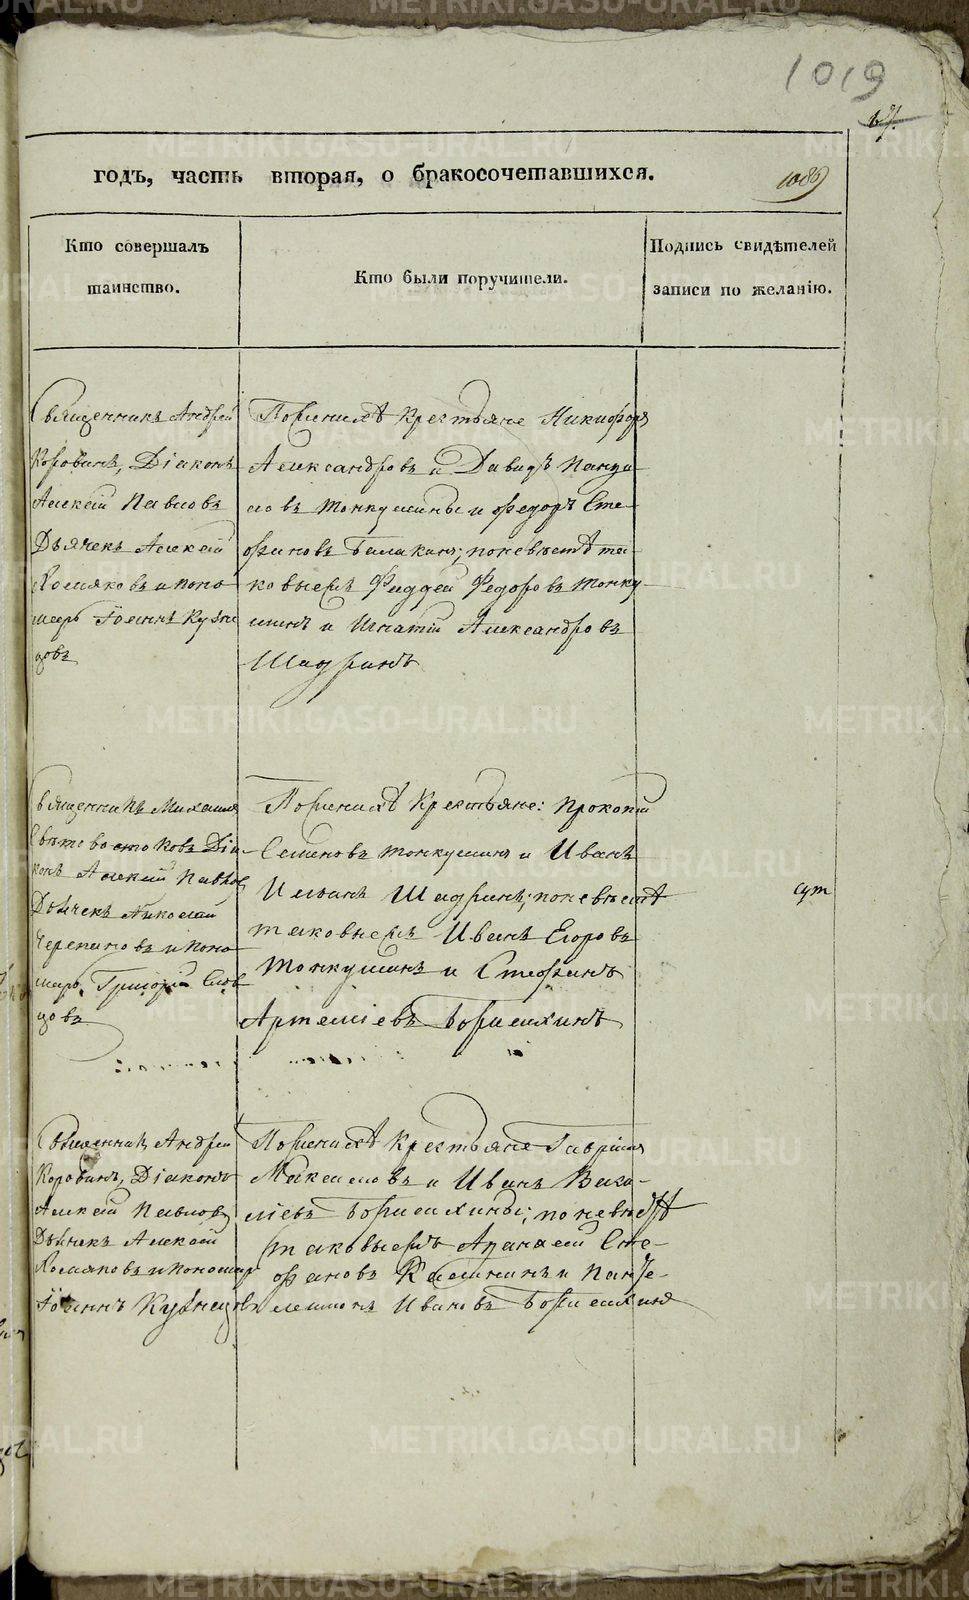 1019
годъ, часть вторая, о бракосочетавшихся.
1089
Кто совершалъ
таинство.
Кто были поручители.
Подпись свидѣтелей
записи по желанію.
Священникъ Андрей
Коровинъ, Діаконъ
Алексій Павловъ
Дьячекъ Алексѣй
и Поно
марь Іоаннъ Кузне
цовъ
По женихѣ Крестьяне Никифоръ
Александровъ и Давидъ
ловъ Тонкушины и Федоръ Сте
фановъ Балакинъ; по невѣстѣ та
ковыежъ Фаддей Федоровъ Тонку
шинъ и Игнатій Александровъ
Шадринъ
Священникъ Михаилъ
Діа
конъ Алексій Павлов
Дьячекъ Николай
Черепановъ и Поно
марь Григорій
цовъ
По женихѣ Крестьяне: Прокопій
Семеновъ Тонкушинъ и Иванъ
Шадринъ; по невѣстѣ
таковыежъ Иванъ Егоровъ
Тонкушинъ и Стефанъ
Артеміевъ
сут
Священникъ Андрей
Коровинъ, Діаконъ
Алексій Павловъ
Дьячекъ Алексѣй
и Пономарь
Іоаннъ Кузнецовъ
По женихѣ Крестьяне Гавріилъ
Максимовъ и Иванъ Васи-
ліевъ по невѣстѣ
таковыежъ Афанасій Сте-
фановъ Калининъ и Панте-
лемонъ Ивановъ
METRIKI.GASO-URAL.RU